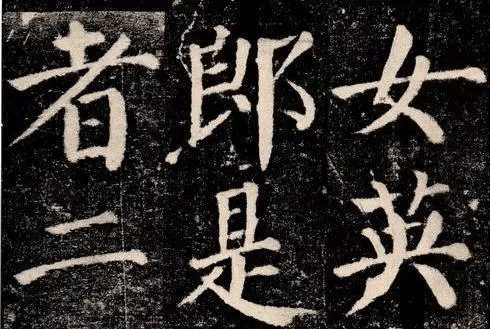 女英
郎是
者二